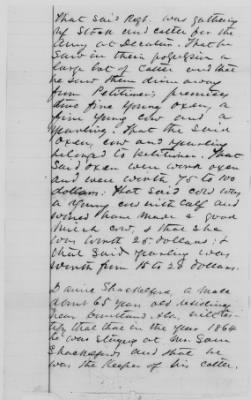 That said Regt. was gathering
up Stock and cattle for the
Army at Decatur. That he
saw in their possession a
large lot of cattle and that
he saw them drive away
from Petitioners premises
two fine young oxen, a
fine young cow and a
yearling. That the said
oxen, cow and yearling
belonged to Petitioner. That
said oxen were work oxen
and were worth 75 to 100
dollars: That said cow was
a young cow with calf and
would have made a good
milch cow, & that she
was worth 25 dollars: &
that said yearling was
worth from 15 to 20 dollars.
Daniel Shackelford, a male
about 65 years old residing
near Courtland, Ala. will tes-
tify that in the year 1864
he was staying at Mrs. 
Shackelfords and that he
was the keeper of his cattle.